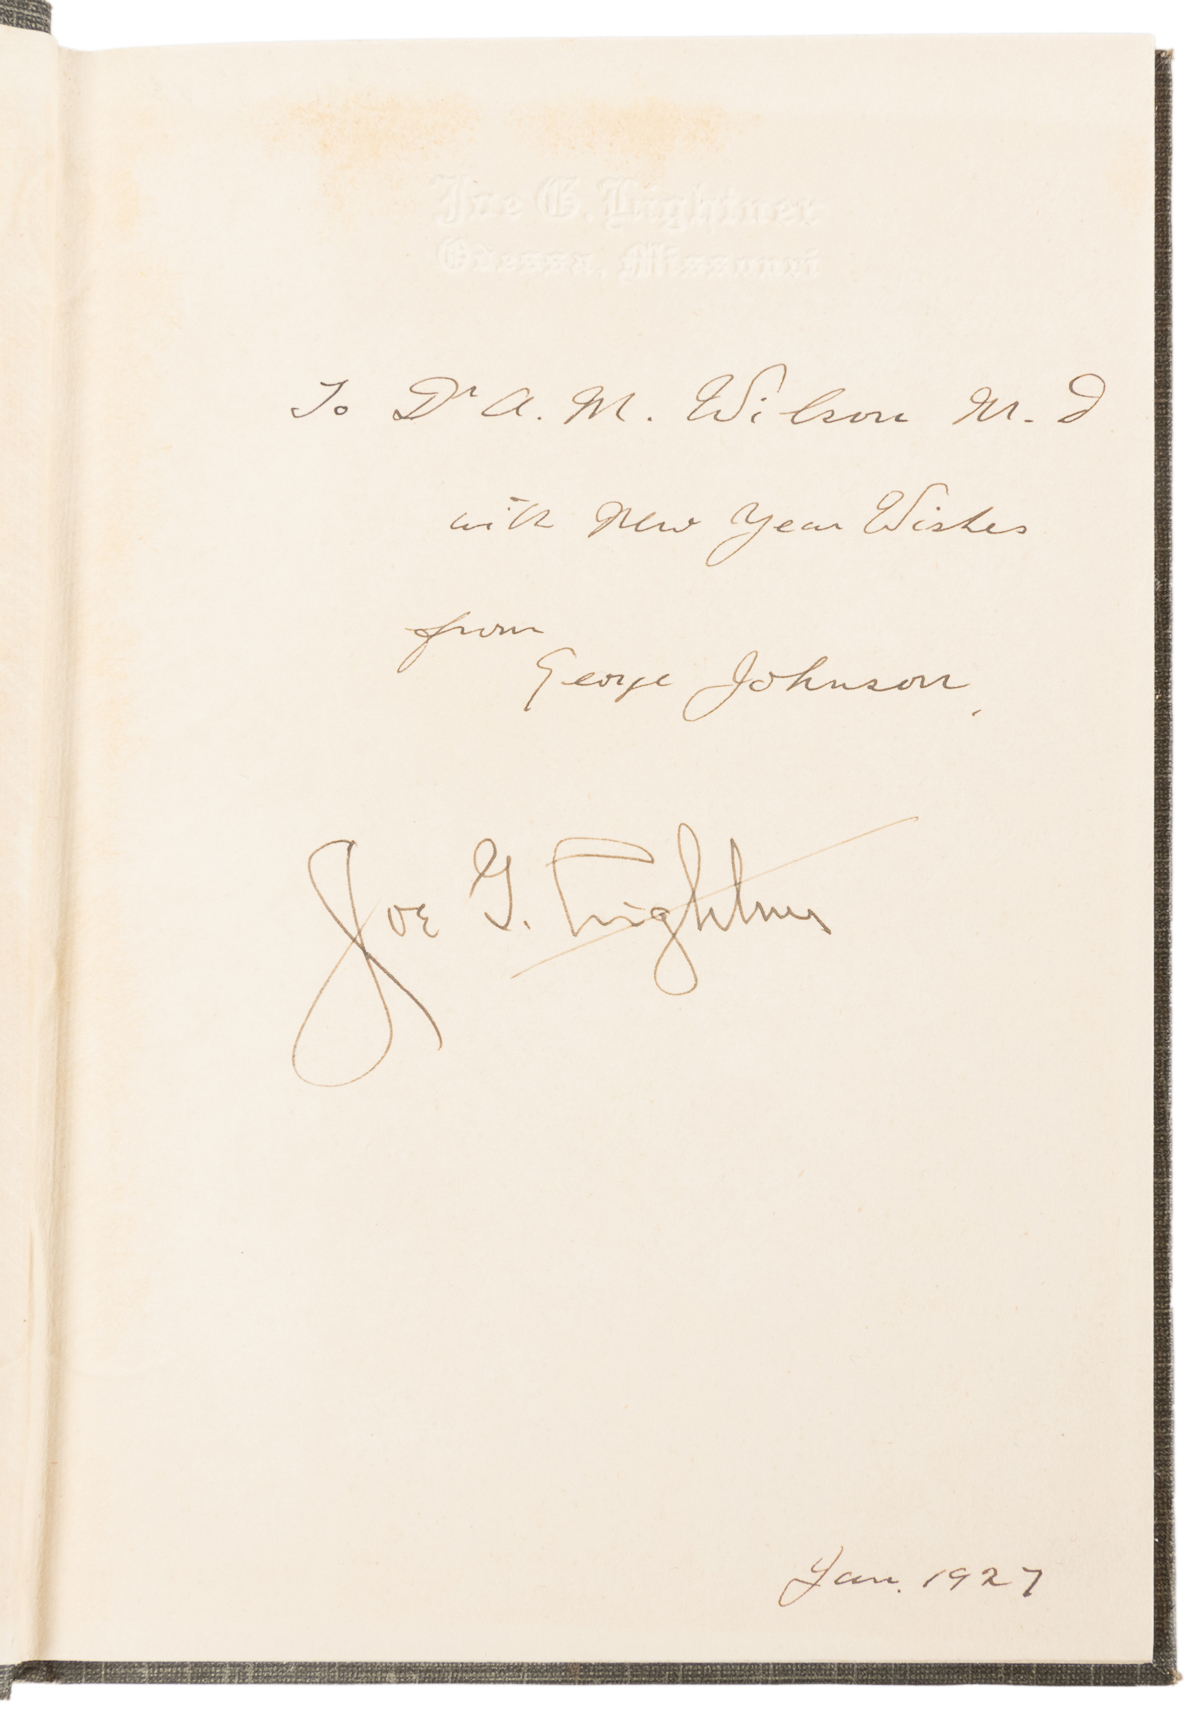 Joe G. Lightner
Odessa, Missouri
To Dr A. M. Wilson M. D
with New Year Wishes
from
George Johnson,
Joe G. Lightner
Jan. 1927